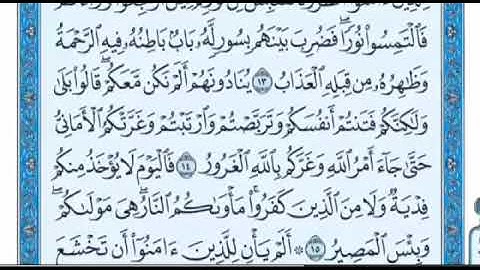 فَٱلْتَمِسُوا۟ نُورًا ۖ فَضُرِبَ بَيْنَهُم بِسُورٍ لَّهُۥ بَابٌۢ بَاطِنُهُۥ فِيهِ ٱلرَّحْمَةُ
وَظَٰهِرُهُۥ مِن قِبَلِهِ ٱلْعَذَابُ ١٣ يُنَادُونَهُمْ أَلَمْ نَكُن مَّعَكُمْ ۖ قَالُوا۟ بَلَىٰ
وَلَٰكِنَّكُمْ فَتَنتُمْ أَنفُسَكُمْ وَتَرَبَّصْتُمْ وَٱرْتَبْتُمْ وَغَرَّتْكُمُ ٱلْأَمَانِىُّ
حَتَّىٰ جَآءَ أَمْرُ ٱللَّهِ وَغَرَّكُم بِٱللَّهِ ٱلْغَرُورُ ١٤ فَٱلْيَوْمَ لَا يُؤْخَذُ مِنكُمْ
فِدْيَةٌ وَلَا مِنَ ٱلَّذِينَ كَفَرُوا۟ ۚ مَأْوَىٰكُمُ ٱلنَّارُ ۖ هِىَ مَوْلَىٰكُمْ ۖ
وَبِئْسَ ٱلْمَصِيرُ ١٥ ۞ أَلَمْ يَأْنِ لِلَّذِينَ ءَامَنُوٓا۟ أَن تَخْشَعَ